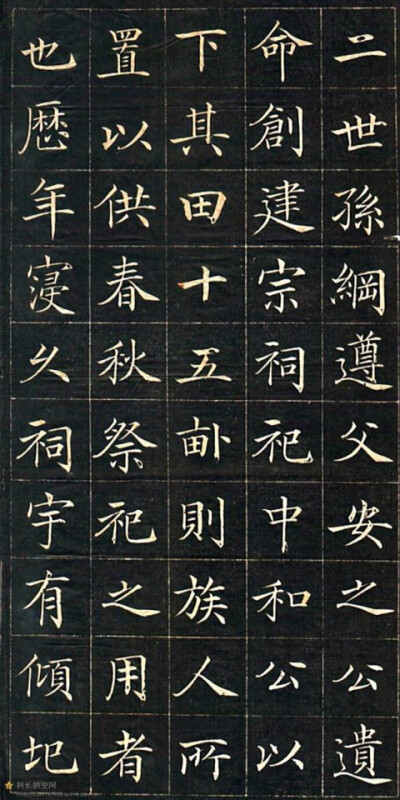 二世孫綱遵父安之公遺
命創建宗祠祀中和公以
下其田十五畝則族人所
置以供春秋祭祀之用者
也歷年寖久祠宇有傾圮
科长的空间